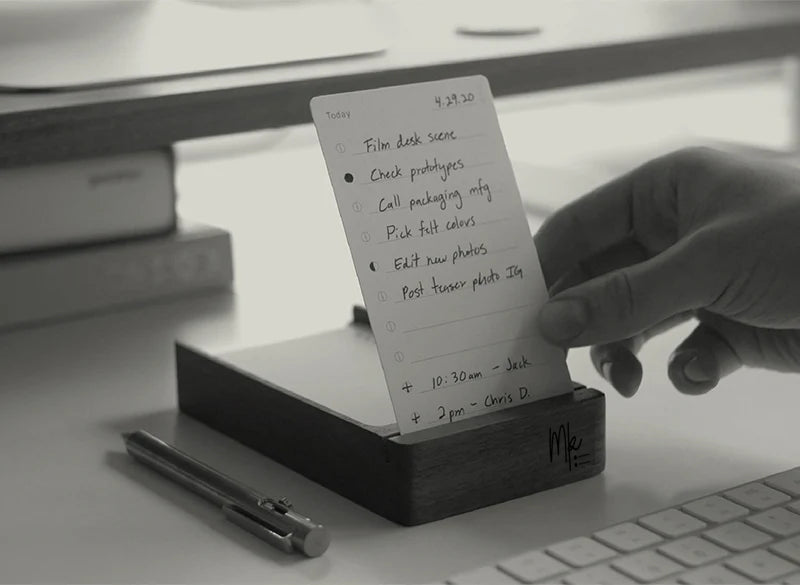 Today 4.29.20
Film desk scene
Check prototypes
Call packaging mfg
Pick felt colors
Edit new photos
Post teaser photo IG
+ 10:30am - Jack
+ 2pm - Chris D.
Mk